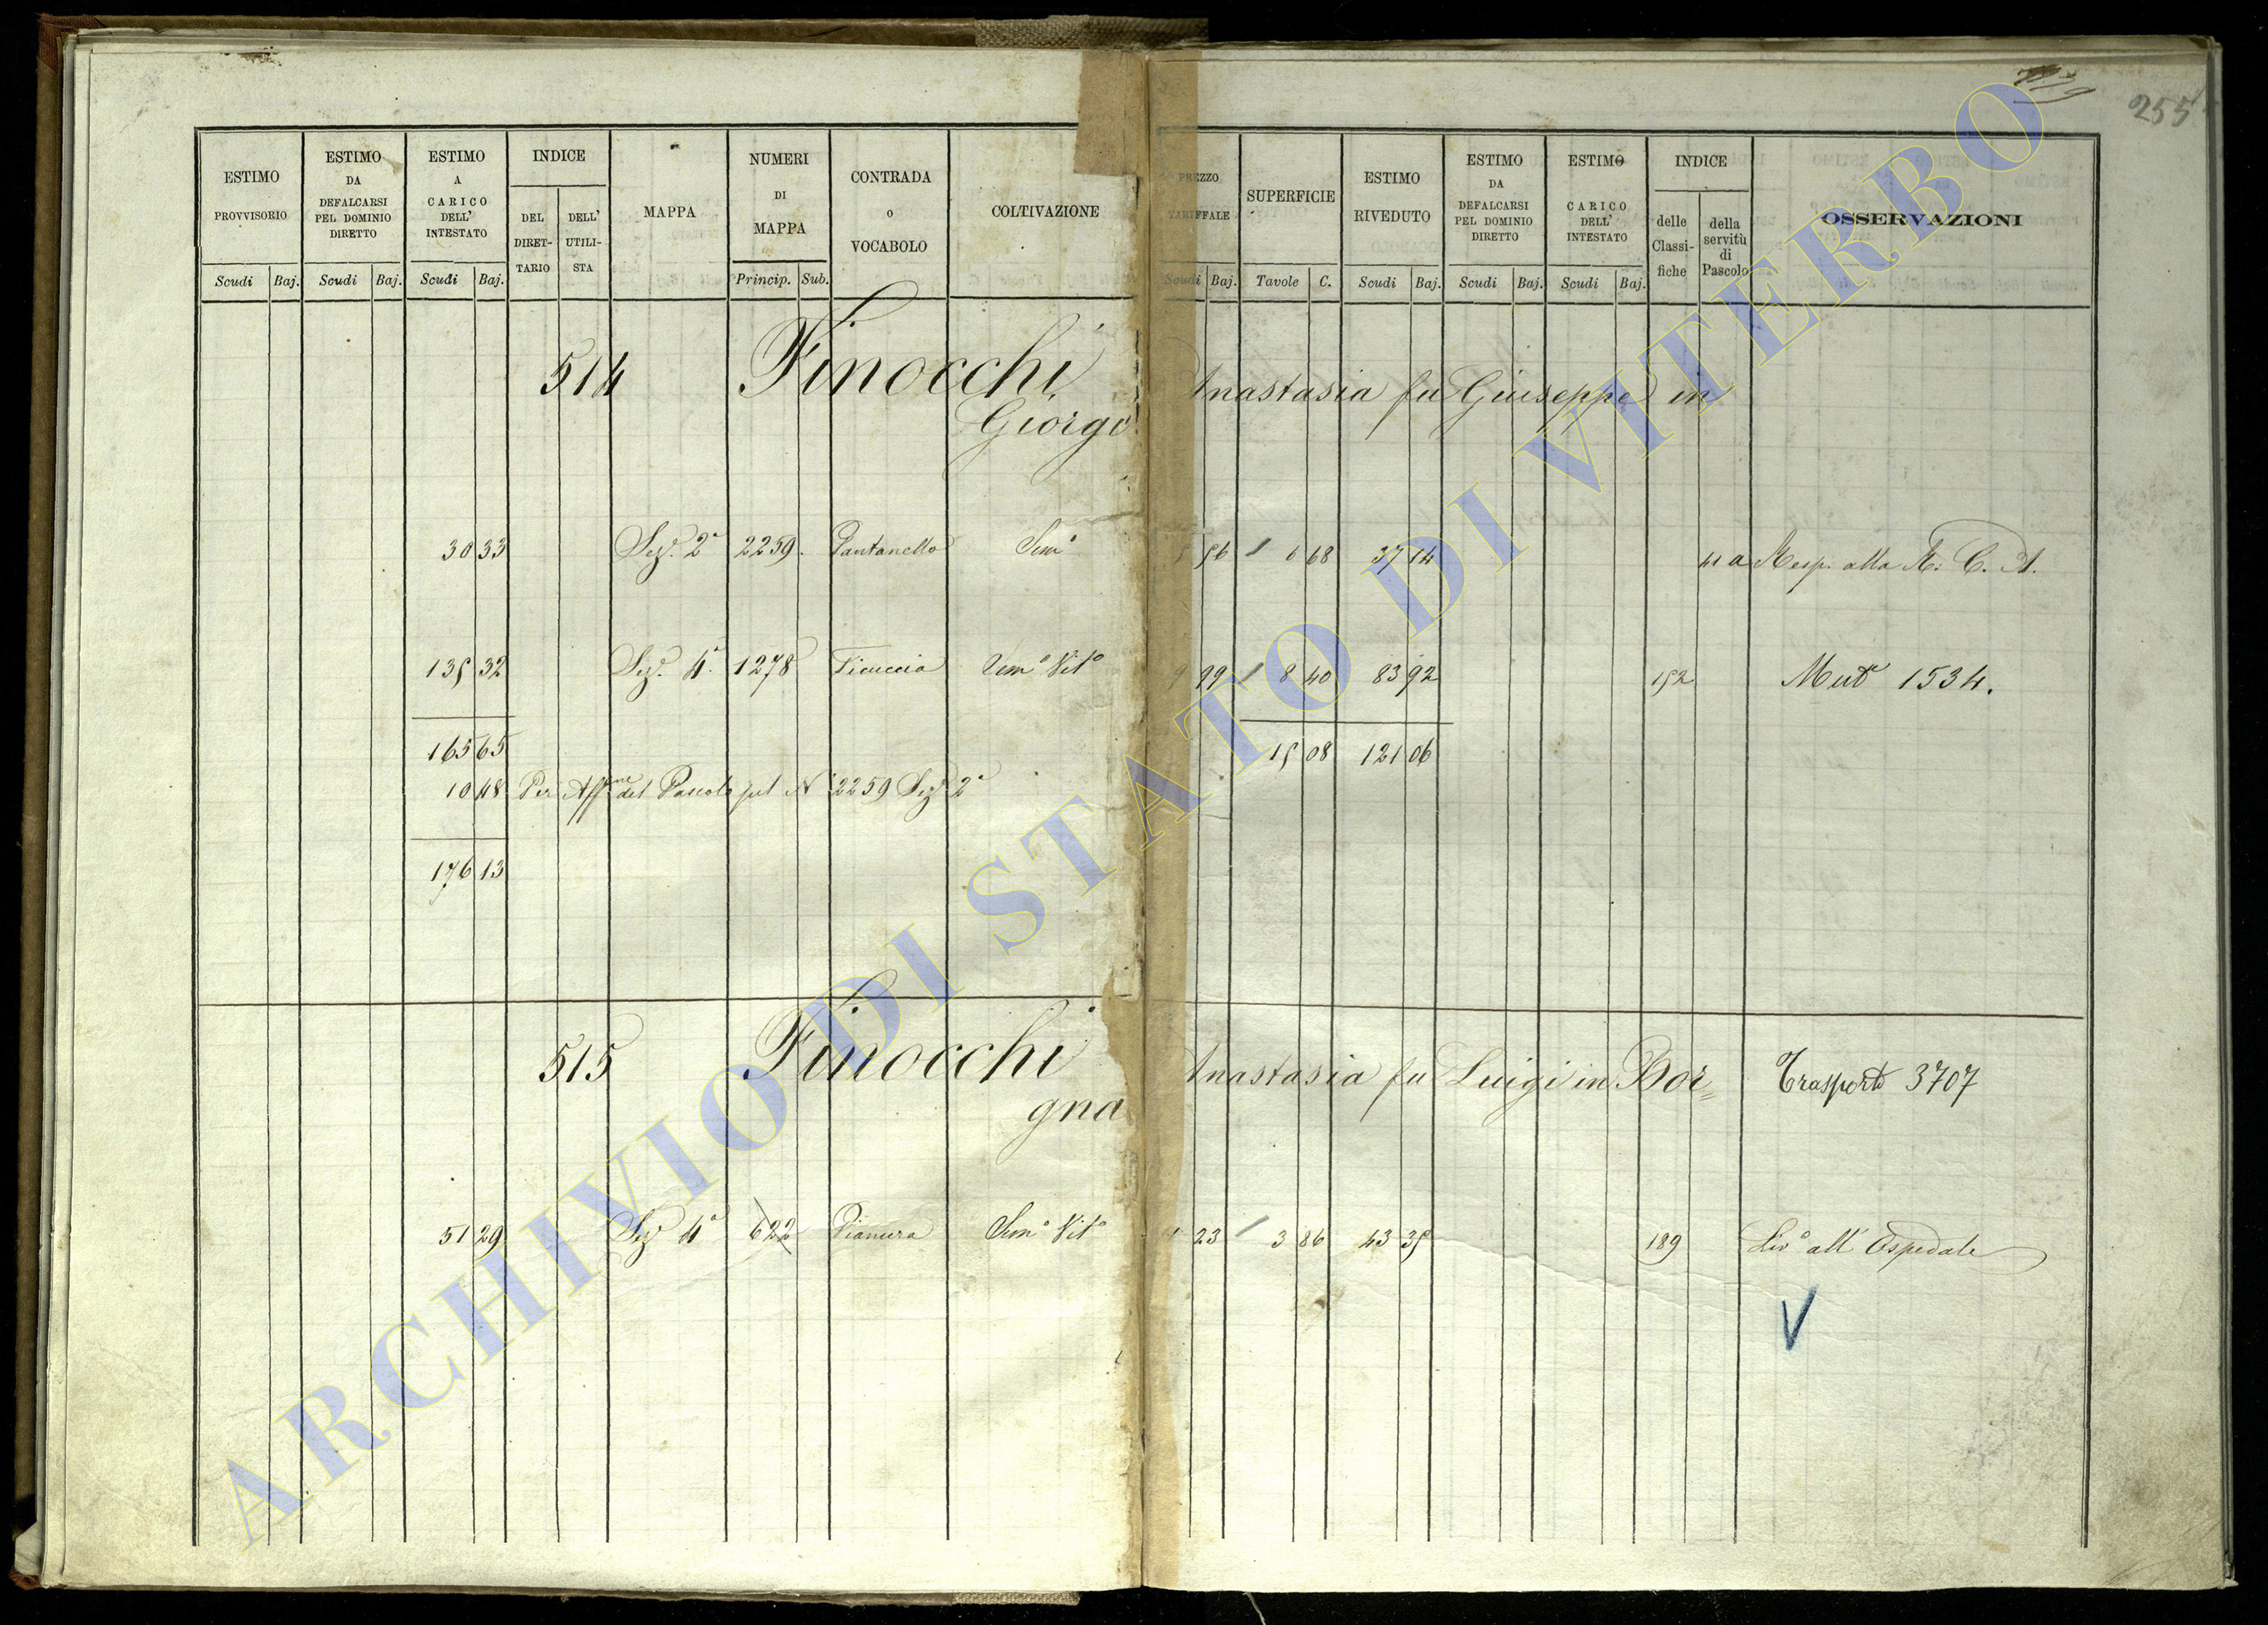 255
ESTIMO PROVVISORIO Scudi Baj.
ESTIMO DA DEFALCARSI PEL DOMINIO DIRETTO Scudi Baj.
ESTIMO A CARICO DELL' INTESTATO Scudi Baj.
INDICE DEL DIRETTARIO DELL' UTILISTA
MAPPA
NUMERI DI MAPPA Princip. Sub.
CONTRADA o VOCABOLO
COLTIVAZIONE
PREZZO TARIFFALE Scudi Baj.
SUPERFICIE Tavole C.
ESTIMO RIVEDUTO Scudi Baj.
ESTIMO DA DEFALCARSI PEL DOMINIO DIRETTO Scudi Baj.
ESTIMO A CARICO DELL' INTESTATO Scudi Baj.
INDICE delle Classifiche della servitù di Pascolo
OSSERVAZIONI
514 Finocchi Anastasia fu Giuseppe in
Giorgi
30 33 Sez. 2ª 2259 Pantanello Semº 5 56 6 68 37 14 a Resp. alla R. C. A.
135 32 Sez. 4ª 1278 Ficuccia Semº Vitº 9 99 8 40 83 92 152 Mutª 1534.
165 65 15 08 121 06
10 48 Per Affne del Pascolo sul N 2259 Sez 2ª
176 13
515 Finocchi Anastasia fu Luigi in Bor= Trasporto 3707
gna
51 29 Sez 4ª 622 Pianura Semº Vitº 23 3 86 43 35 189 Livº all' Ospedale
V
ARCHIVIO DI STATO DI VITERBO